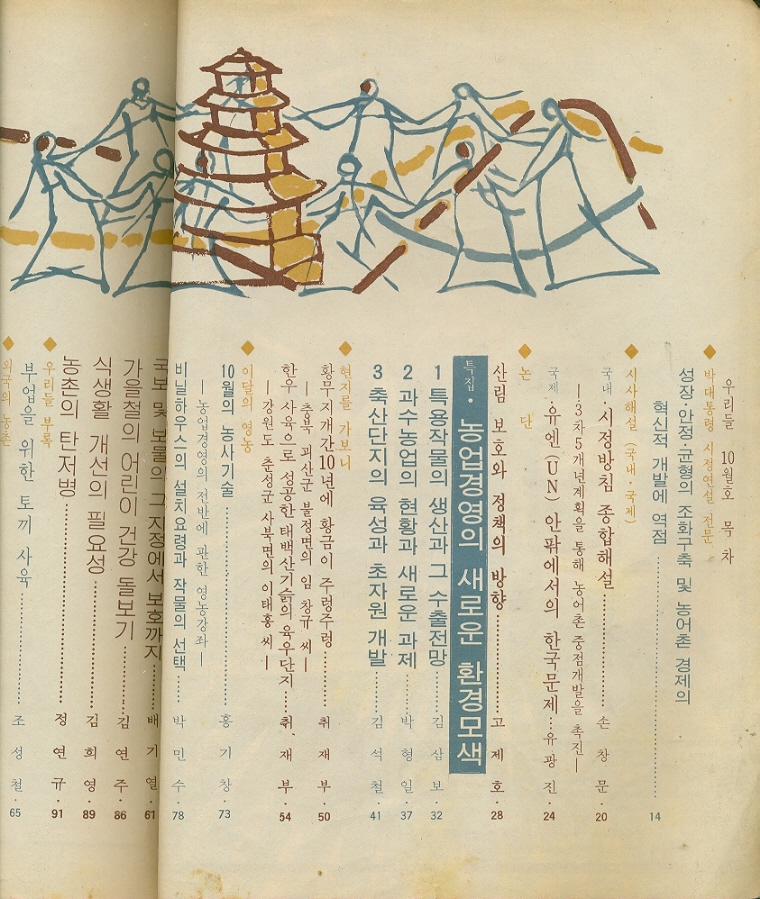 우리들 10월호 목차
◆ 박대통령 시정연설 전문
성장·안정·균형의 조화구축 및 농어촌 경제의
혁신적 개발에 역점 14
◆ 시사해설 (국내·국제)
국내·시정방침 종합해설 손창문·20
―3차5개년계획을 통해 농어촌 중점개발을 촉진―
국제·유엔(UN) 안팎에서의 한국문제 유광진·24
◆ 논단
산림 보호와 정책의 방향 고제호·28
특집·농업경영의 새로운 환경모색
1 특용작물의 생산과 그 수출전망 김삼보·32
2 과수농업의 현황과 새로운 과제 박형일·37
3 축산단지의 육성과 초자원 개발 김석철·41
◆ 현지를 가보니
황무지개간10년에 황금이 주렁주렁 취재부·50
―충북 괴산군 불정면의 임창규 씨―
한우 사육으로 성공한 태백산기슭의 육우단지 취재부·54
―강원도 춘성군 사북면의 이태홍 씨―
◆ 이달의 영농
10월의 농사기술 홍기창·73
―농업경영의 전반에 관한 영농강좌―
비닐하우스의 설치요령과 작물의 선택 박민수·78
국보 및 보물의 그 지정에서 보호까지 배기열·61
가을철의 어린이 건강 돌보기 김연주·86
식생활 개선의 필요성 김희영·89
농촌의 탄저병 정연규·91
◆ 우리들 부록
부업을 위한 토끼 사육 조성철·65
◆ 외국의 농촌